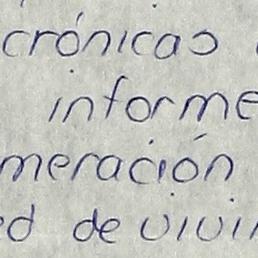 crónicas
informe
meración
ed de vivi